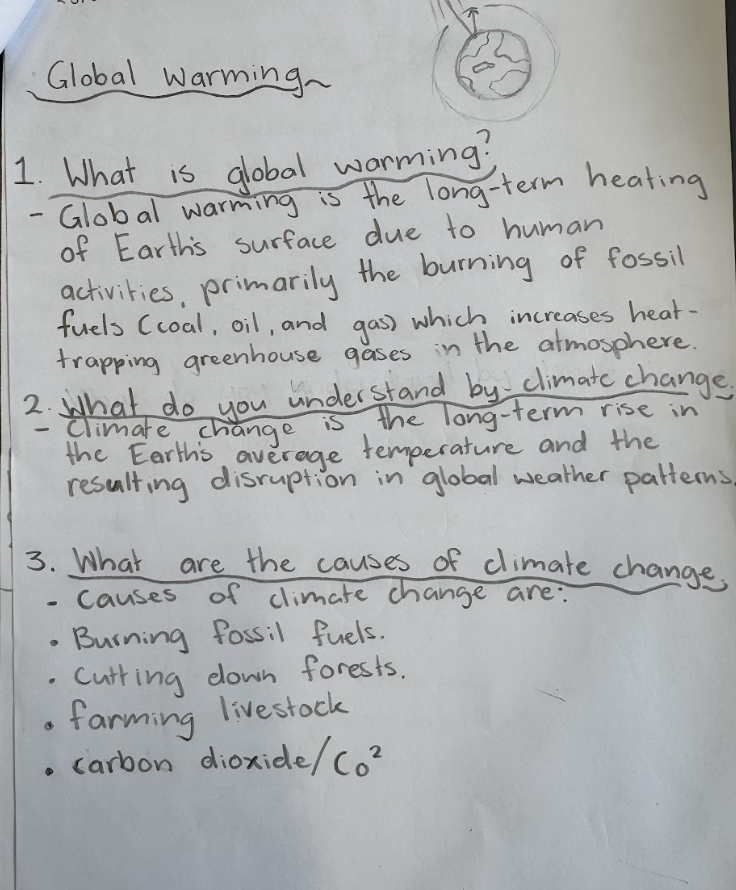 Global warming
1. What is global warming?
- Global warming is the long-term heating
of Earth's surface due to human
activities, primarily the burning of fossil
fuels (coal, oil, and gas) which increases heat-
trapping greenhouse gases in the atmosphere.
2. What do you understand by climate change.
- Climate change is the long-term rise in
the Earth's average temperature and the
resulting disruption in global weather patterns.
3. What are the causes of climate change.
- Causes of climate change are:
• Burning fossil fuels.
• Cutting down forests.
• farming livestock
• carbon dioxide/Co²